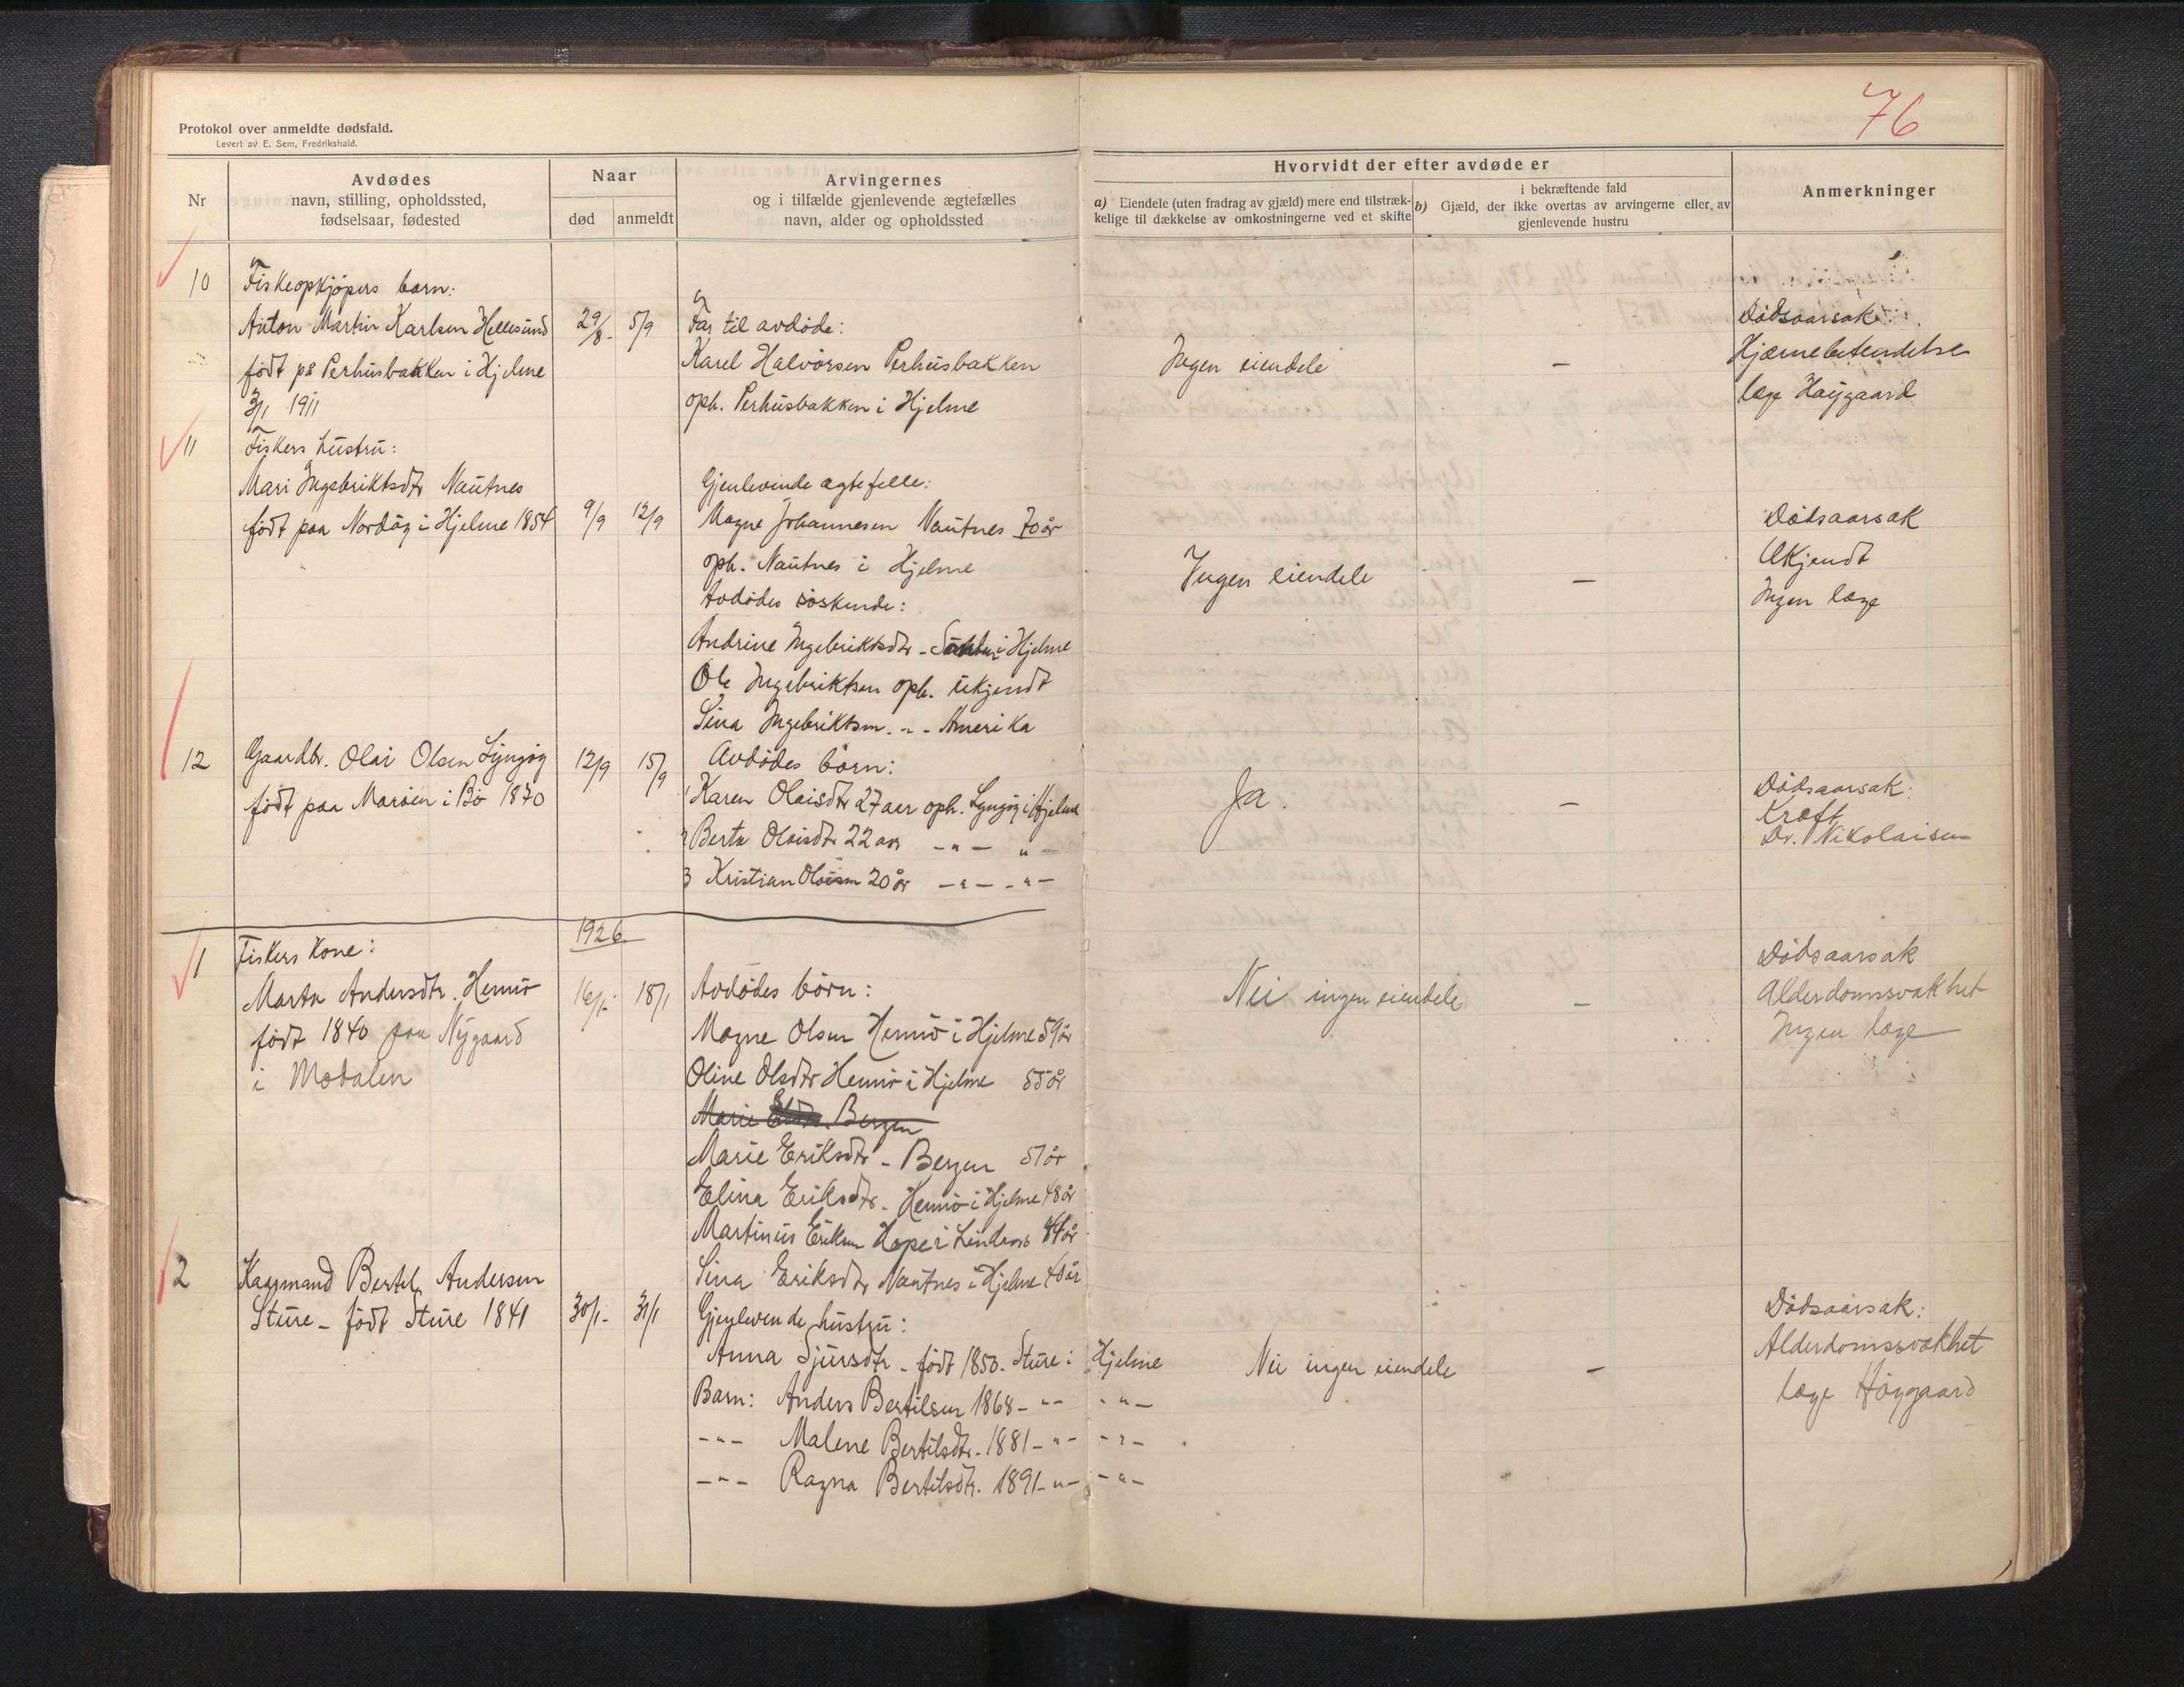 76
Protokol over anmeldte dødsfald.
Levert av E. Sem, Fredrikshald.
Nr
Avdødes
navn, stilling, opholdssted,
fødselsaar, fødested
Naar
død
anmeldt
Arvingernes
og i tilfælde gjenlevende ægtefælles
navn, alder og opholdssted
Hvorvidt der efter avdøde er
a) Eiendele (uten fradrag av gjæld) mere end tilstræk-
kelige til dækkelse av omkostningerne ved et skifte
b) i bekræftende fald
Gjæld, der ikke overtas av arvingerne eller av
gjenlevende hustru
Anmerkninger
10 Fiskeopkjøpers barn:
Anton Martin Karlsen Hellesund 29/8- 5/9
født på Perhusbakken i Hjelme
3/1 1911
Far til avdøde:
Karel Halvorsen Perhusbakken
oph. Perhusbakken i Hjelme
Ingen eiendele –
Dødsaarsak:
Hjernebetendelse
læge Høygaard
11 Fiskers hustru:
Mari Ingebriktsdtr Nautnes
født paa Nordøy i Hjelme 1854 9/9 12/9
Gjenlevende ægtefelle:
Magne Johannesen Nautnes 70 år
oph. Nautnes i Hjelme
Avdødes søskende:
Andrine Ingebriktsdtr - i Hjelme
Ole Ingebriktsen oph. ukjendt
Sina Ingebriktsen - " - Amerika
Ingen eiendele –
Dødsaarsak
Ukjendt
Ingen læge
12 Gaardbr. Olai Olsen Lyngøy 12/9 15/9
født paa Marøen i Bø 1870
Avdødes børn:
1 Karen Olaisdtr 27 aar oph. Lyngøy i Hjelme
2 Berta Olaisdtr 22 aar - " - " -
3 Kristian Olaisen 20 år - " - - " -
Ja. –
Dødsaarsak:
Kræft
Dr. Nikolaisen
1926.
1 Fiskers kone:
Marta Andersdtr. Hernø 16/1- 18/1
født 1840 paa Nygaard
i Modalen
Avdødes børn:
Magne Olsen Hernø i Hjelme 59 år
Oline Olsdtr Hernø i Hjelme 55 år
Marie Bergen
Marie Eriksdtr - Bergen 51 år
Elina Eriksdtr. Hernø i Hjelme 48 år
Martinus Eriksen Hope i Lindaas 44 år
Sina Eriksdtr Nautnes i Hjelme 40 år
Nei ingen eiendele –
Dødsaarsak
Alderdomssvakhet
Ingen læge
2 Kaarmand Bertel Andersen
Sture - født Sture 1841 30/1- 31/1
Gjenlevende hustru:
Anna Sjursdtr - født 1850 - Sture i Hjelme
Barn: Anders Bertilsen 1868 - " - - " -
- " - Malene Bertilsdtr - 1881 - " - - " -
- " - Ragna Bertilsdtr. 1891 - " - - " -
Nei ingen eiendele –
Dødsaarsak:
Alderdomssvakhet
læge Høygaard